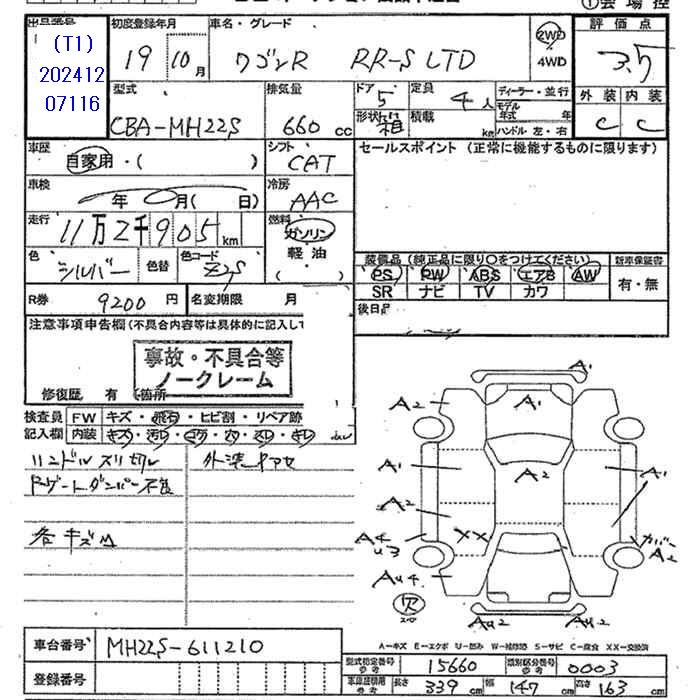 出品番号
(T1)
202412
07116
初度登録年月
19 10月
車名・グレード
ワゴンR RR-S LTD
2WD
4WD
評価点
3.5
外装 内装
C C
型式
CBA-MH22S
排気量
660 cc
ドア
5
形状
箱
定員
4人
積載
kg
ディーラー・並行
モデル
年式 年
ハンドル 左・右
車歴
自家用・( )
シフト
CAT
セールスポイント (正常に機能するものに限ります)
車検
年 月( 日)
冷房
AAC
走行
11万2千905km
燃料
ガソリン
軽油
( )
色
シルバー
色替
色コード
Z2S
装備品 (純正品に限り○をつけてください)
PS PW ABS エアB AW
SR ナビ TV カワ
新車保証書
有・無
R券
9200円
名変期限 月
後日品
注意事項申告欄(不具合内容等は具体的に記入して
事故・不具合等
ノークレーム
修復歴 有 箇所
検査員
記入欄
FW キズ・飛石・ヒビ割・リペア跡
内装 キズ・汚レ・コゲ・穴・スレ・キレ
ハンドルスリ切レ
外装ヤケアセ
Rゲートダンパー不良
各キズM
A1
A2
A1
A1
A2
A1
A2
XX
A4
U3
カバー
A2
AU4
欠
AU2
AU2
A-キズ E-エクボ U-凹み W-補修跡 S-サビ C-腐食 XX-交換済
車台番号
MH22S-611210
登録番号
型式指定番号
参考
15660
類別区分番号
参考
0003
車庫証明用
参考
長さ 339 cm
幅 147 cm
高さ 163 cm